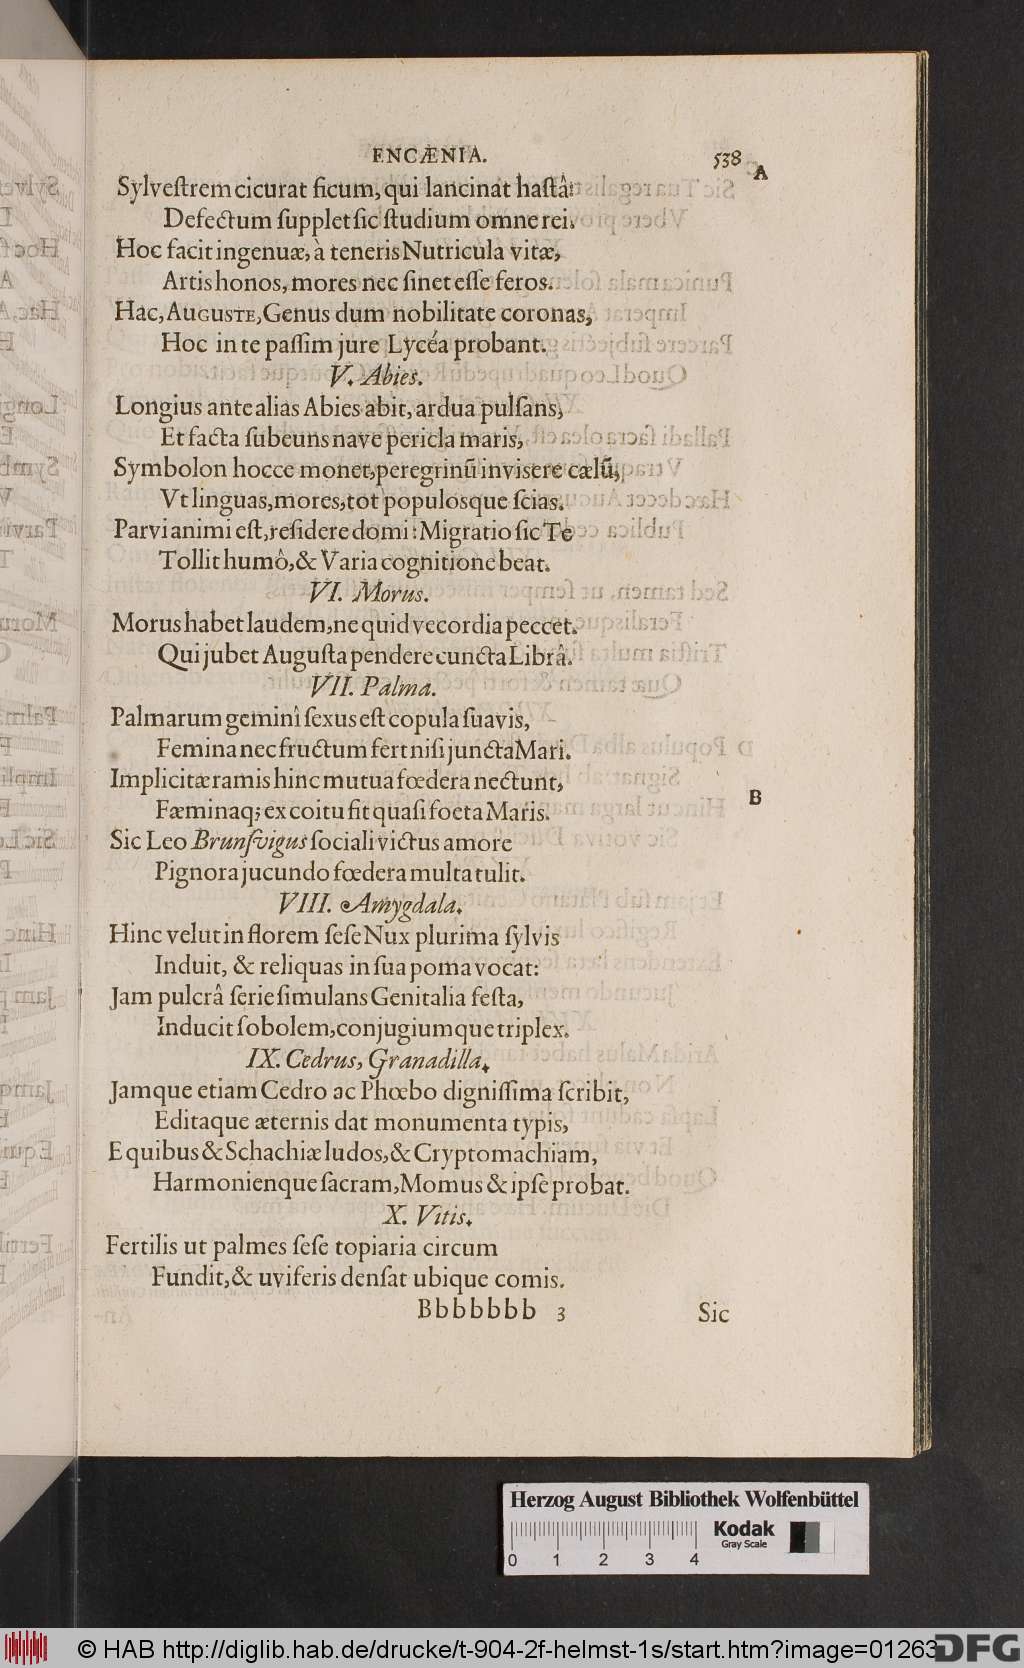 ENCÆNIA. 538
A
Sylveſtrem cicurat ficum, qui lancinat haſtâ:
Defectum ſupplet ſic ſtudium omne rei.
Hoc facit ingenuæ, à teneris Nutricula vitæ,
Artis honos, mores nec ſinet eſſe feros.
Hac, AUGUSTE, Genus dum nobilitate coronas,
Hoc in te paſſim jure Lycéa probant.
V. Abies.
Longius ante alias Abies abit, ardua pulſans,
Et facta ſubeuns nave pericla maris,
Symbolon hocce monet, peregrinũ inviſere cælũ,
Vt linguas, mores, tot populosque ſcias.
Parvi animi eſt, reſidere domi: Migratio ſic Te
Tollit humô, & Varia cognitione beat.
VI. Morus.
Morus habet laudem, ne quid vecordia peccet.
Qui jubet Auguſta pendere cuncta Librâ.
VII. Palma.
Palmarum geminî ſexus eſt copula ſuavis,
Femina nec fructum fert niſi juncta Mari.
Implicitæ ramis hinc mutua fœdera nectunt,
B
Fæminaq; ex coitu fit quaſi foeta Maris.
Sic Leo Brunſvigus ſociali victus amore
Pignora jucundo fœdera multa tulit.
VIII. Amygdala.
Hinc velut in florem ſeſe Nux plurima ſylvis
Induit, & reliquas in ſua poma vocat:
Jam pulcrâ ſerie ſimulans Genitalia feſta,
Inducit ſobolem, conjugiumque triplex.
IX. Cedrus, Granadilla.
Jamque etiam Cedro ac Phœbo digniſſima ſcribit,
Editaque æternis dat monumenta typis,
Equibus & Schachiæ ludos, & Cryptomachiam,
Harmonienque ſacram, Momus & ipſe probat.
X. Vitis.
Fertilis ut palmes ſeſe topiaria circum
Fundit, & uviferis denſat ubique comis.
Bbbbbbb 3 Sic
Herzog August Bibliothek Wolfenbüttel
Kodak
Gray Scale
0 1 2 3 4
© HAB http://diglib.hab.de/drucke/t-904-2f-helmst-1s/start.htm?image=01263
DFG